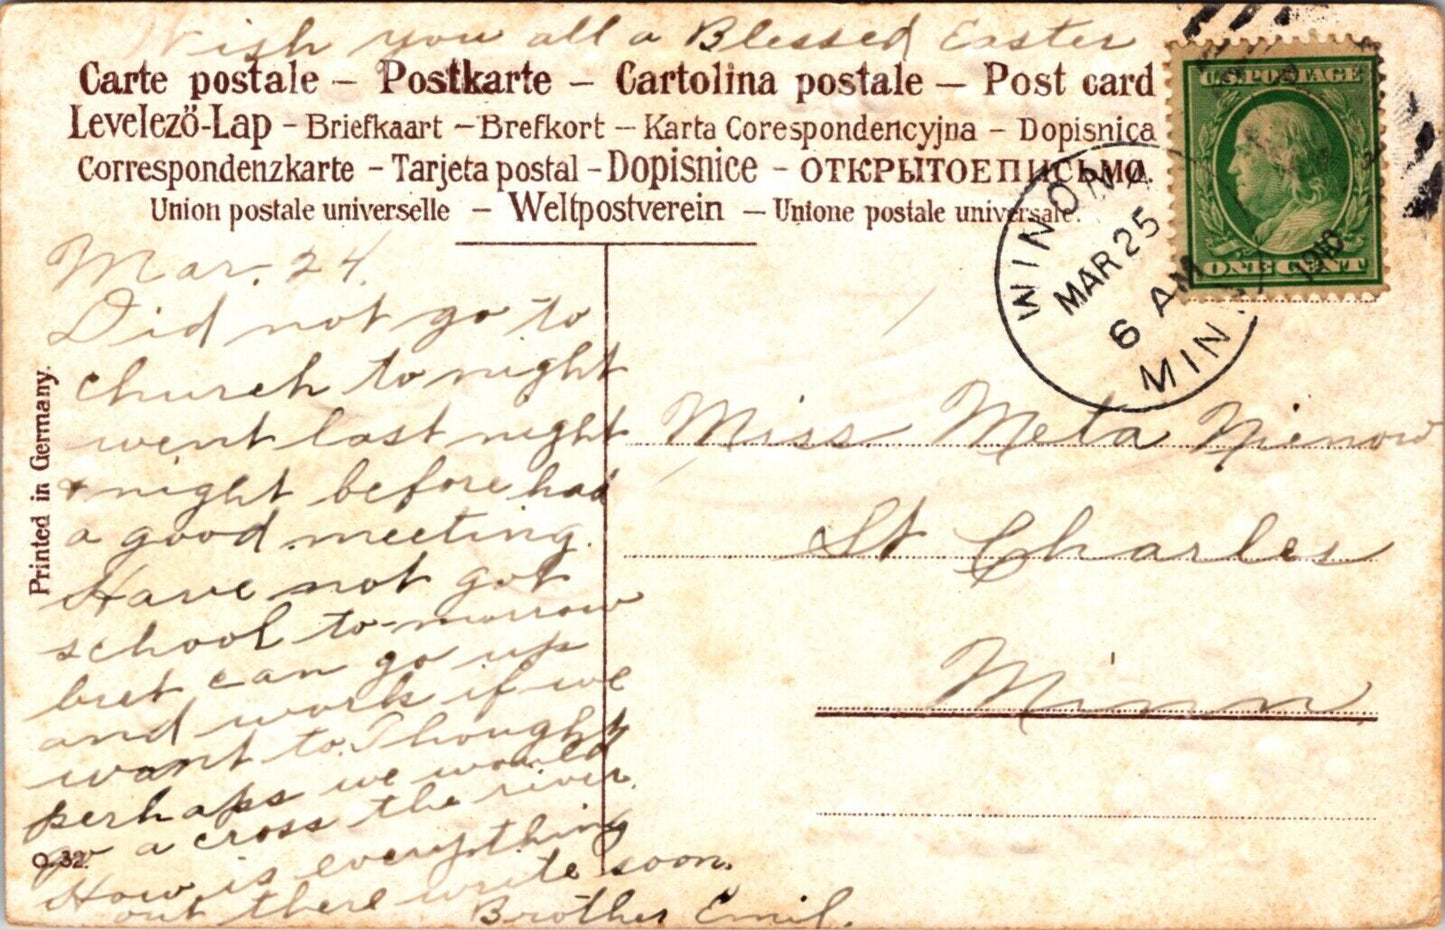 Wish you all a Blessed Easter
Carte postale – Postkarte – Cartolina postale – Post card
Levelező-Lap – Briefkaart – Brefkort – Karta Corespondencyjna – Dopisnica
Correspondenzkarte – Tarjeta postal – Dopisnice – ОТКРЫТОЕ ПИСЬМО.
Union postale universelle – Weltpostverein – Unione postale universale.
U.S. POSTAGE
ONE CENT
WINONA
MAR 25
6 AM
1910
MINN.
Mar. 24.
Did not go to
church to night
went last night
+ night before had
a good meeting.
Have not got
school to-morrow
but can go up
and work if we
want to. Thought
perhaps we would
go a cross the river.
How is everything
out there write soon.
Brother Emil.
Miss Meta Nienow
St Charles
Minn
Printed in Germany.
O.32.